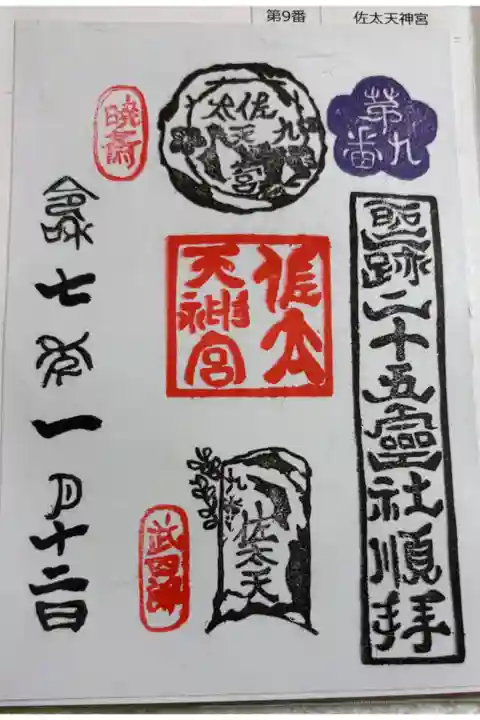 第9番
佐太天神宮
第九番
聖跡二十五霊社順拝
佐太天宮
九
佐太
天神宮
九番
佐太天
暁斎
武四郎
令和七年一月十二日